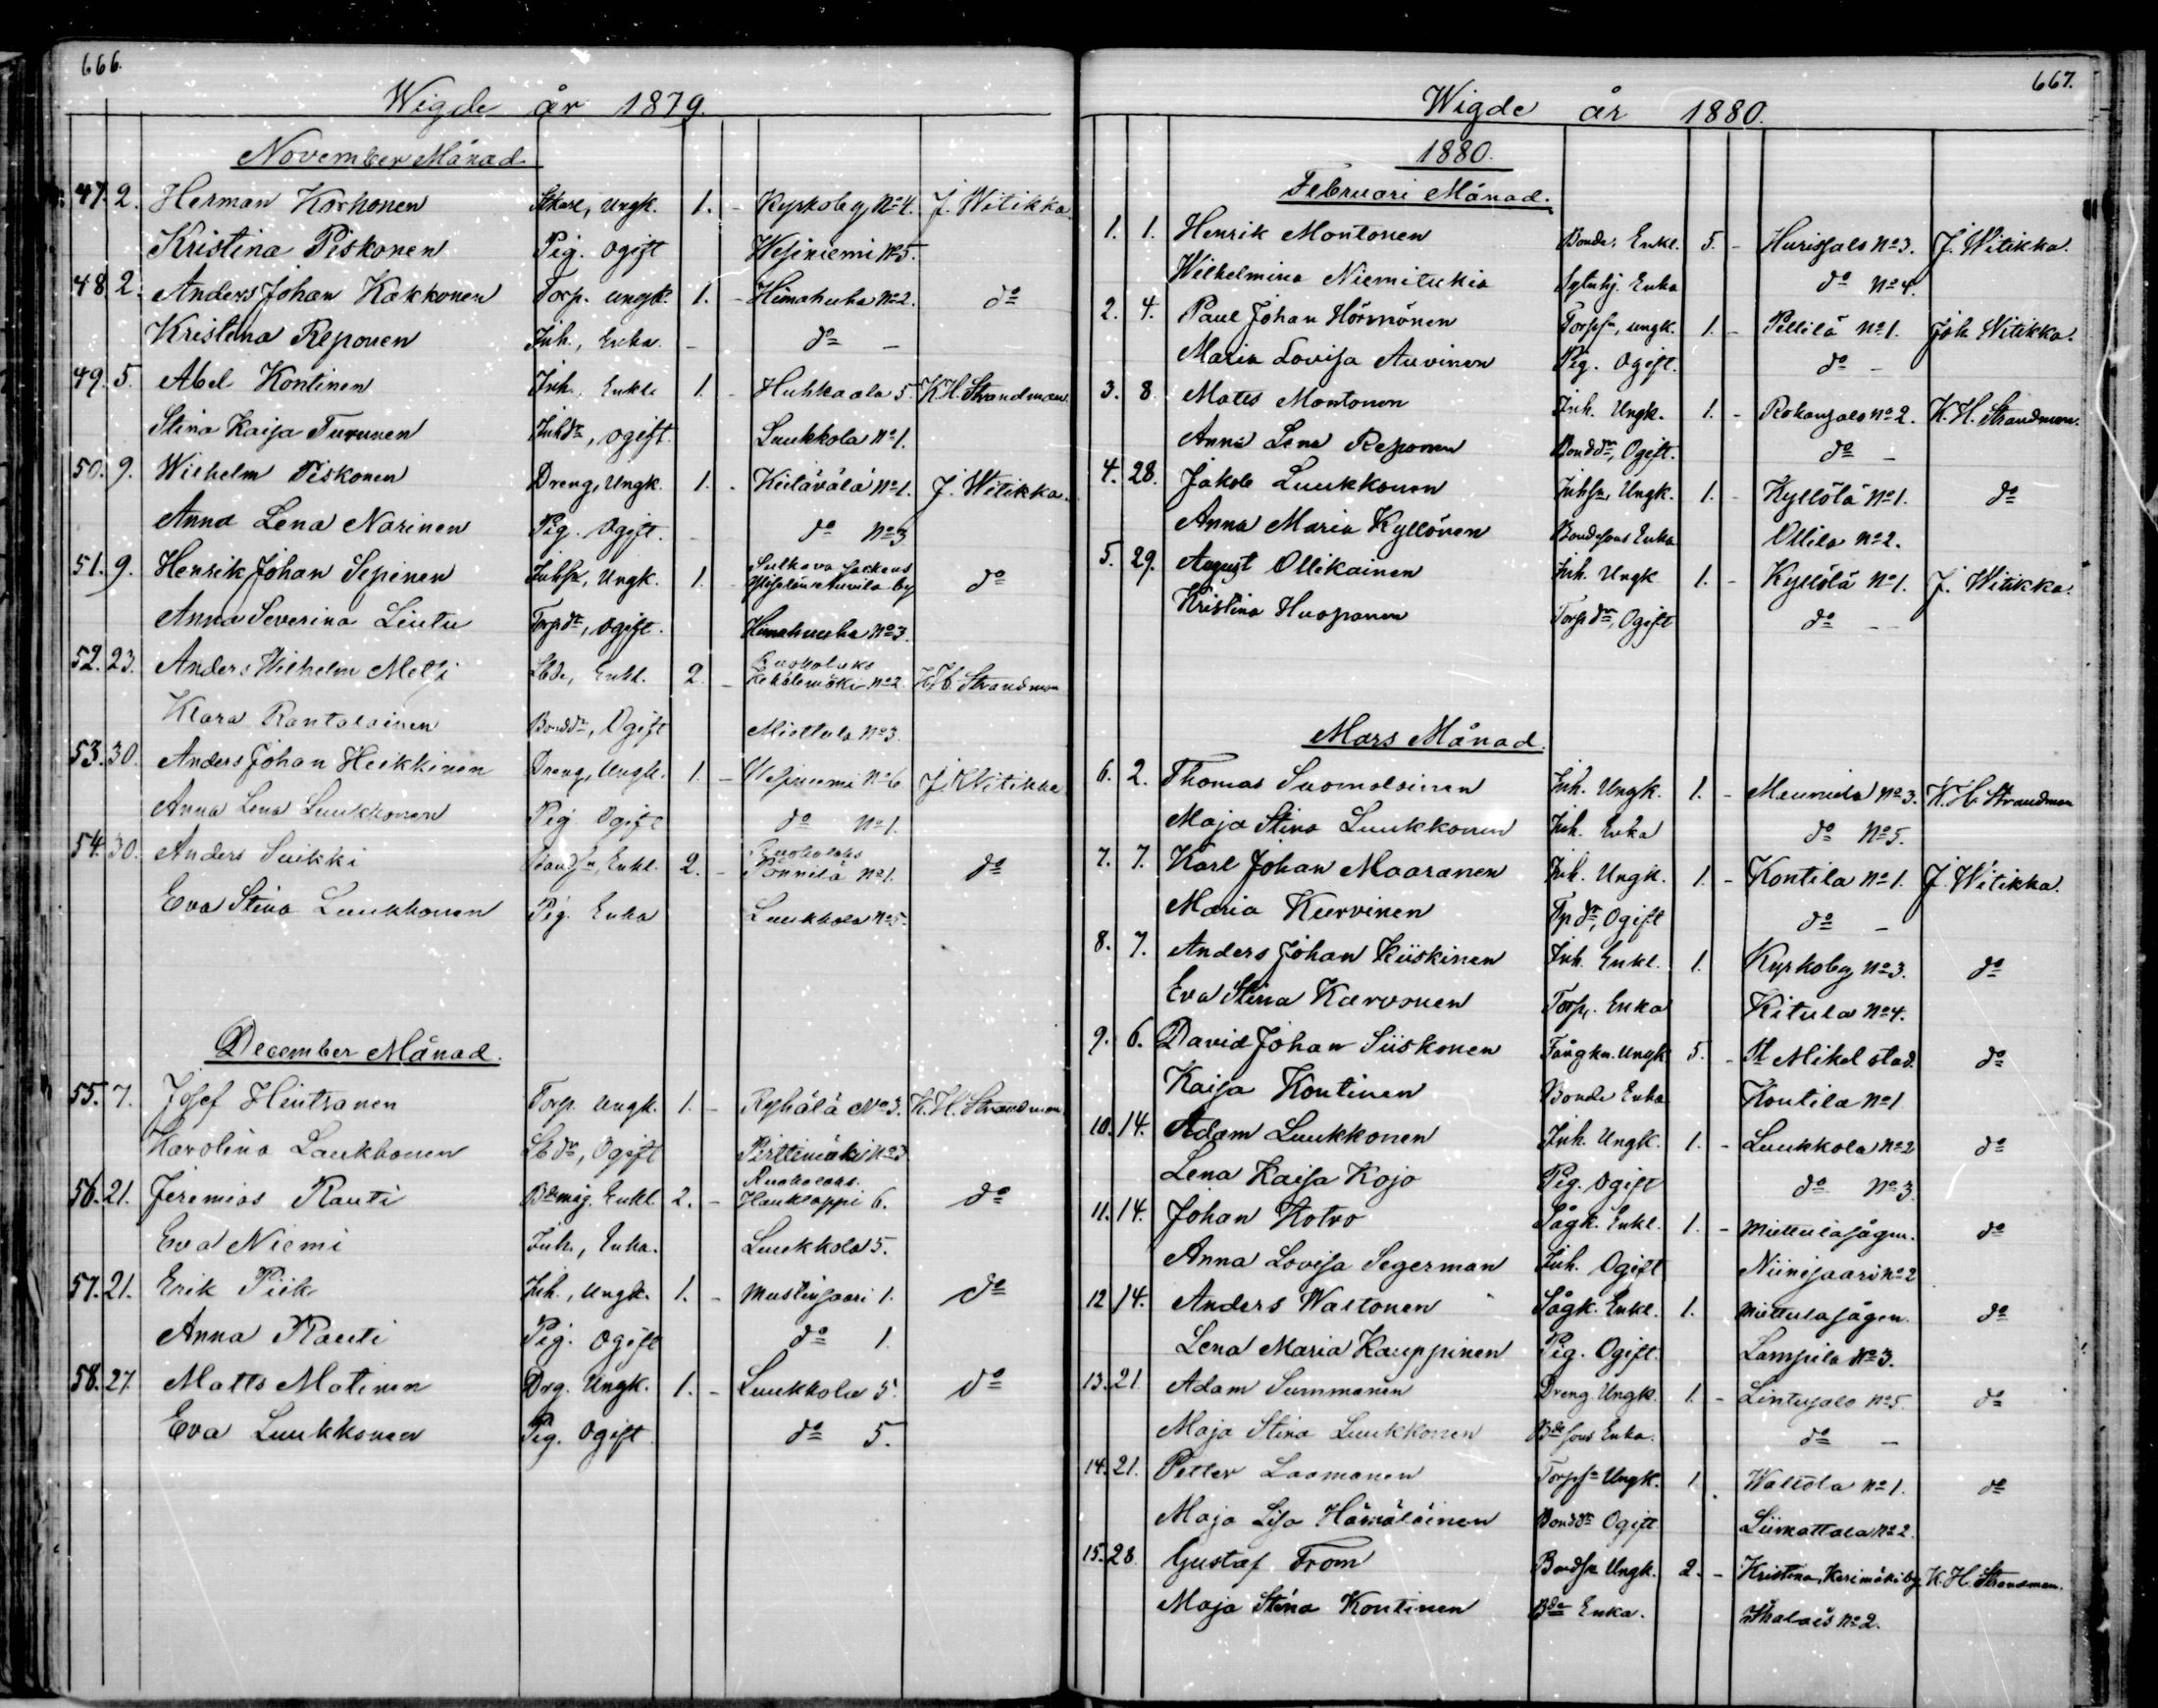 666.
Wigde år 1879.
November Månad.
47. 2. Herman Korhonen Skarl, Ungk. 1. - Kyrkoby No 4. J. Witikka.
Kristina Piskonen Pig. Ogift Wesiniemi No 5.
48 2. Anders Johan Kakkonen Torp. Ungk. 1. - Himahuha No 2. do
Kristina Reponen Inh., Enka. - do -
49. 5. Abel Kontinen Inh., Enkl. 1. - Huhkaala 5. K.H. Strandman.
Stina Kaisa Turunen Inhdr, Ogift. Luukkola No 1.
50. 9. Wilhelm Piskonen Dreng, Ungk. 1. - Kietävälä No 1. J. Witikka.
Anna Lena Narinen Pig. Ogift. - do No 3
51. 9. Henrik Johan Sepinen Inhsn, Ungk. 1. - Sulkava Sockens by do
Anna Severina Lintu Torpdr, Ogift. Himahuha No 3.
52. 23. Anders Wilhelm Meltz Lbde, Enkl. 2. - Ruokolaks Kekälemäki No 2. K.H. Strandman
Klara Rantalainen Bonddr, Ogift Miettula No 3.
53. 30. Anders Johan Heikkinen Dreng, Ungk. 1. - Wesiniemi No 6 J. Witikka
Anna Lena Luukkonen Pig. Ogift do No 1.
54. 30. Anders Suikki Bondsn, Enkl. 2. - Ruokolaks Pönnilä No 1. do
Eva Stina Luukkonen Pig. Enka Luukkola No 5.
December Månad.
55. 7. Josef Hintsanen Torp. Ungk. 1. - Ryhälä No 3. K.H. Strandman
Karolina Laukkanen Lbdr, Ogift Pirttimäki No 3
56. 21. Jeremias Rauti Bdemåg. Enkl 2. - Ruokolaks. Haukloppi 6. do
Eva Niemi Inh., Enka. Luukkola 5.
57. 21. Erik Piik Inh., Ungk. 1. - Mustinsaari 1. do
Anna Rauti Pig. Ogift do 1.
58. 27. Matts Matinen Drg. Ungk. 1. - Luukkola 5. do
Eva Luukkonen Pig. Ogift do 5.
667.
Wigde år 1880.
1880.
Februari Månad.
1. 1. Henrik Montonen Bonde, Enkl. 5 - Hurissalo No 3. J. Witikka.
Wilhelmina Niemitukia Enka do No 4.
2. 4. Paul Johan Hörmönen Torpsn, Ungk. 1. - Pellilä No 1. Joh. Witikka.
Maria Lovisa Auvinen Pig. Ogift. do -
3. 8. Matts Montonen Inh. Ungk. 1. - Rokansalo No 2. K.H. Strandman.
Anna Lena Reponen Bonddr, Ogift. do -
4. 28. Jakob Luukkonen Inhsn, Ungk. 1. - Kyllölä No 1. do
Anna Maria Kyllönen Bondesons Enka Ollila No 2.
5. 29. August Ollikainen Inh. Ungk 1. - Kyllölä No 1. J. Witikka.
Kristina Huoponen Torpdr, Ogift do - -
Mars Månad.
6. 2. Thomas Suomolainen Inh. Ungk. 1. - Maunula No 3. K.H. Strandman
Maja Stina Luukkonen Inh. Enka do No 5.
7. 7. Karl Johan Maaranen Inh. Ungk. 1. - Kontila No 1. J. Witikka.
Maria Kurvinen Tpdr, Ogift do -
8. 7. Anders Johan Kiiskinen Inh. Enkl. 1. Kyrkoby No 3. do
Eva Stina Karvonen Torp. Enka Kitula No 4.
9. 6. David Johan Siiskonen Fångkn. Ungk 5. - St Mikel stad. do
Kaisa Kontinen Bonde Enka Kontila No 1
10. 14. Adam Luukkonen Inh. Ungk. 1. - Luukkola No 2 do
Lena Kaisa Kojo Pig. Ogift do No 3.
11. 14. Johan Kotro Sågk. Enkl. 1. - Miettulasågen. do
Anna Lovisa Segerman Inh. Ogift Niinisaari No 2
12 14. Anders Waltonen Sågk. Enkl. 1. Miettulasågen. do
Lena Maria Kauppinen Pig. Ogift. Lampila No 3.
13. 21. Adam Summanen Dreng Ungk. 1. - Lintusalo No 5. do
Maja Stina Luukkonen Bdesons Enka. do -
14. 21. Petter Laamanen Torpsn Ungk. 1. Waltola No 1. do
Maja Lisa Hämäläinen Bonddr Ogift Liimattala No 2.
15. 28. Gustaf From Bondsn Ungk. 2. - Kristina, Kerimäki by K.H. Strandman.
Maja Stina Kontinen Bde Enka. No 2.